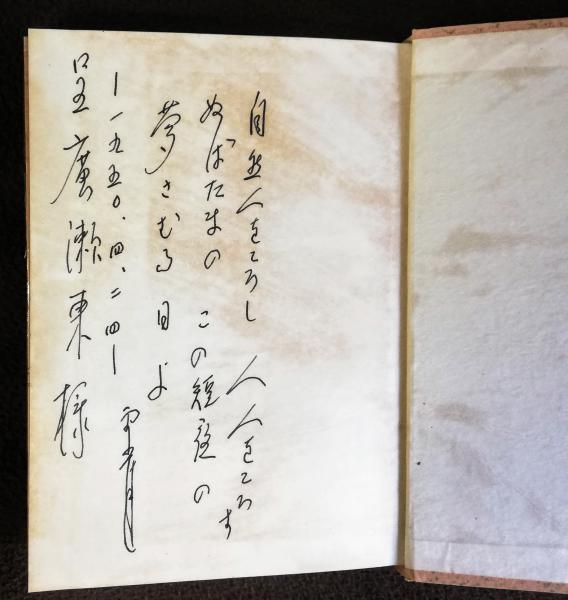 自然人をころし 人人をころす
ぬばたまの この短夜の
夢さむる 日よ
—一九五〇、四、二四—
呈廣瀬東様